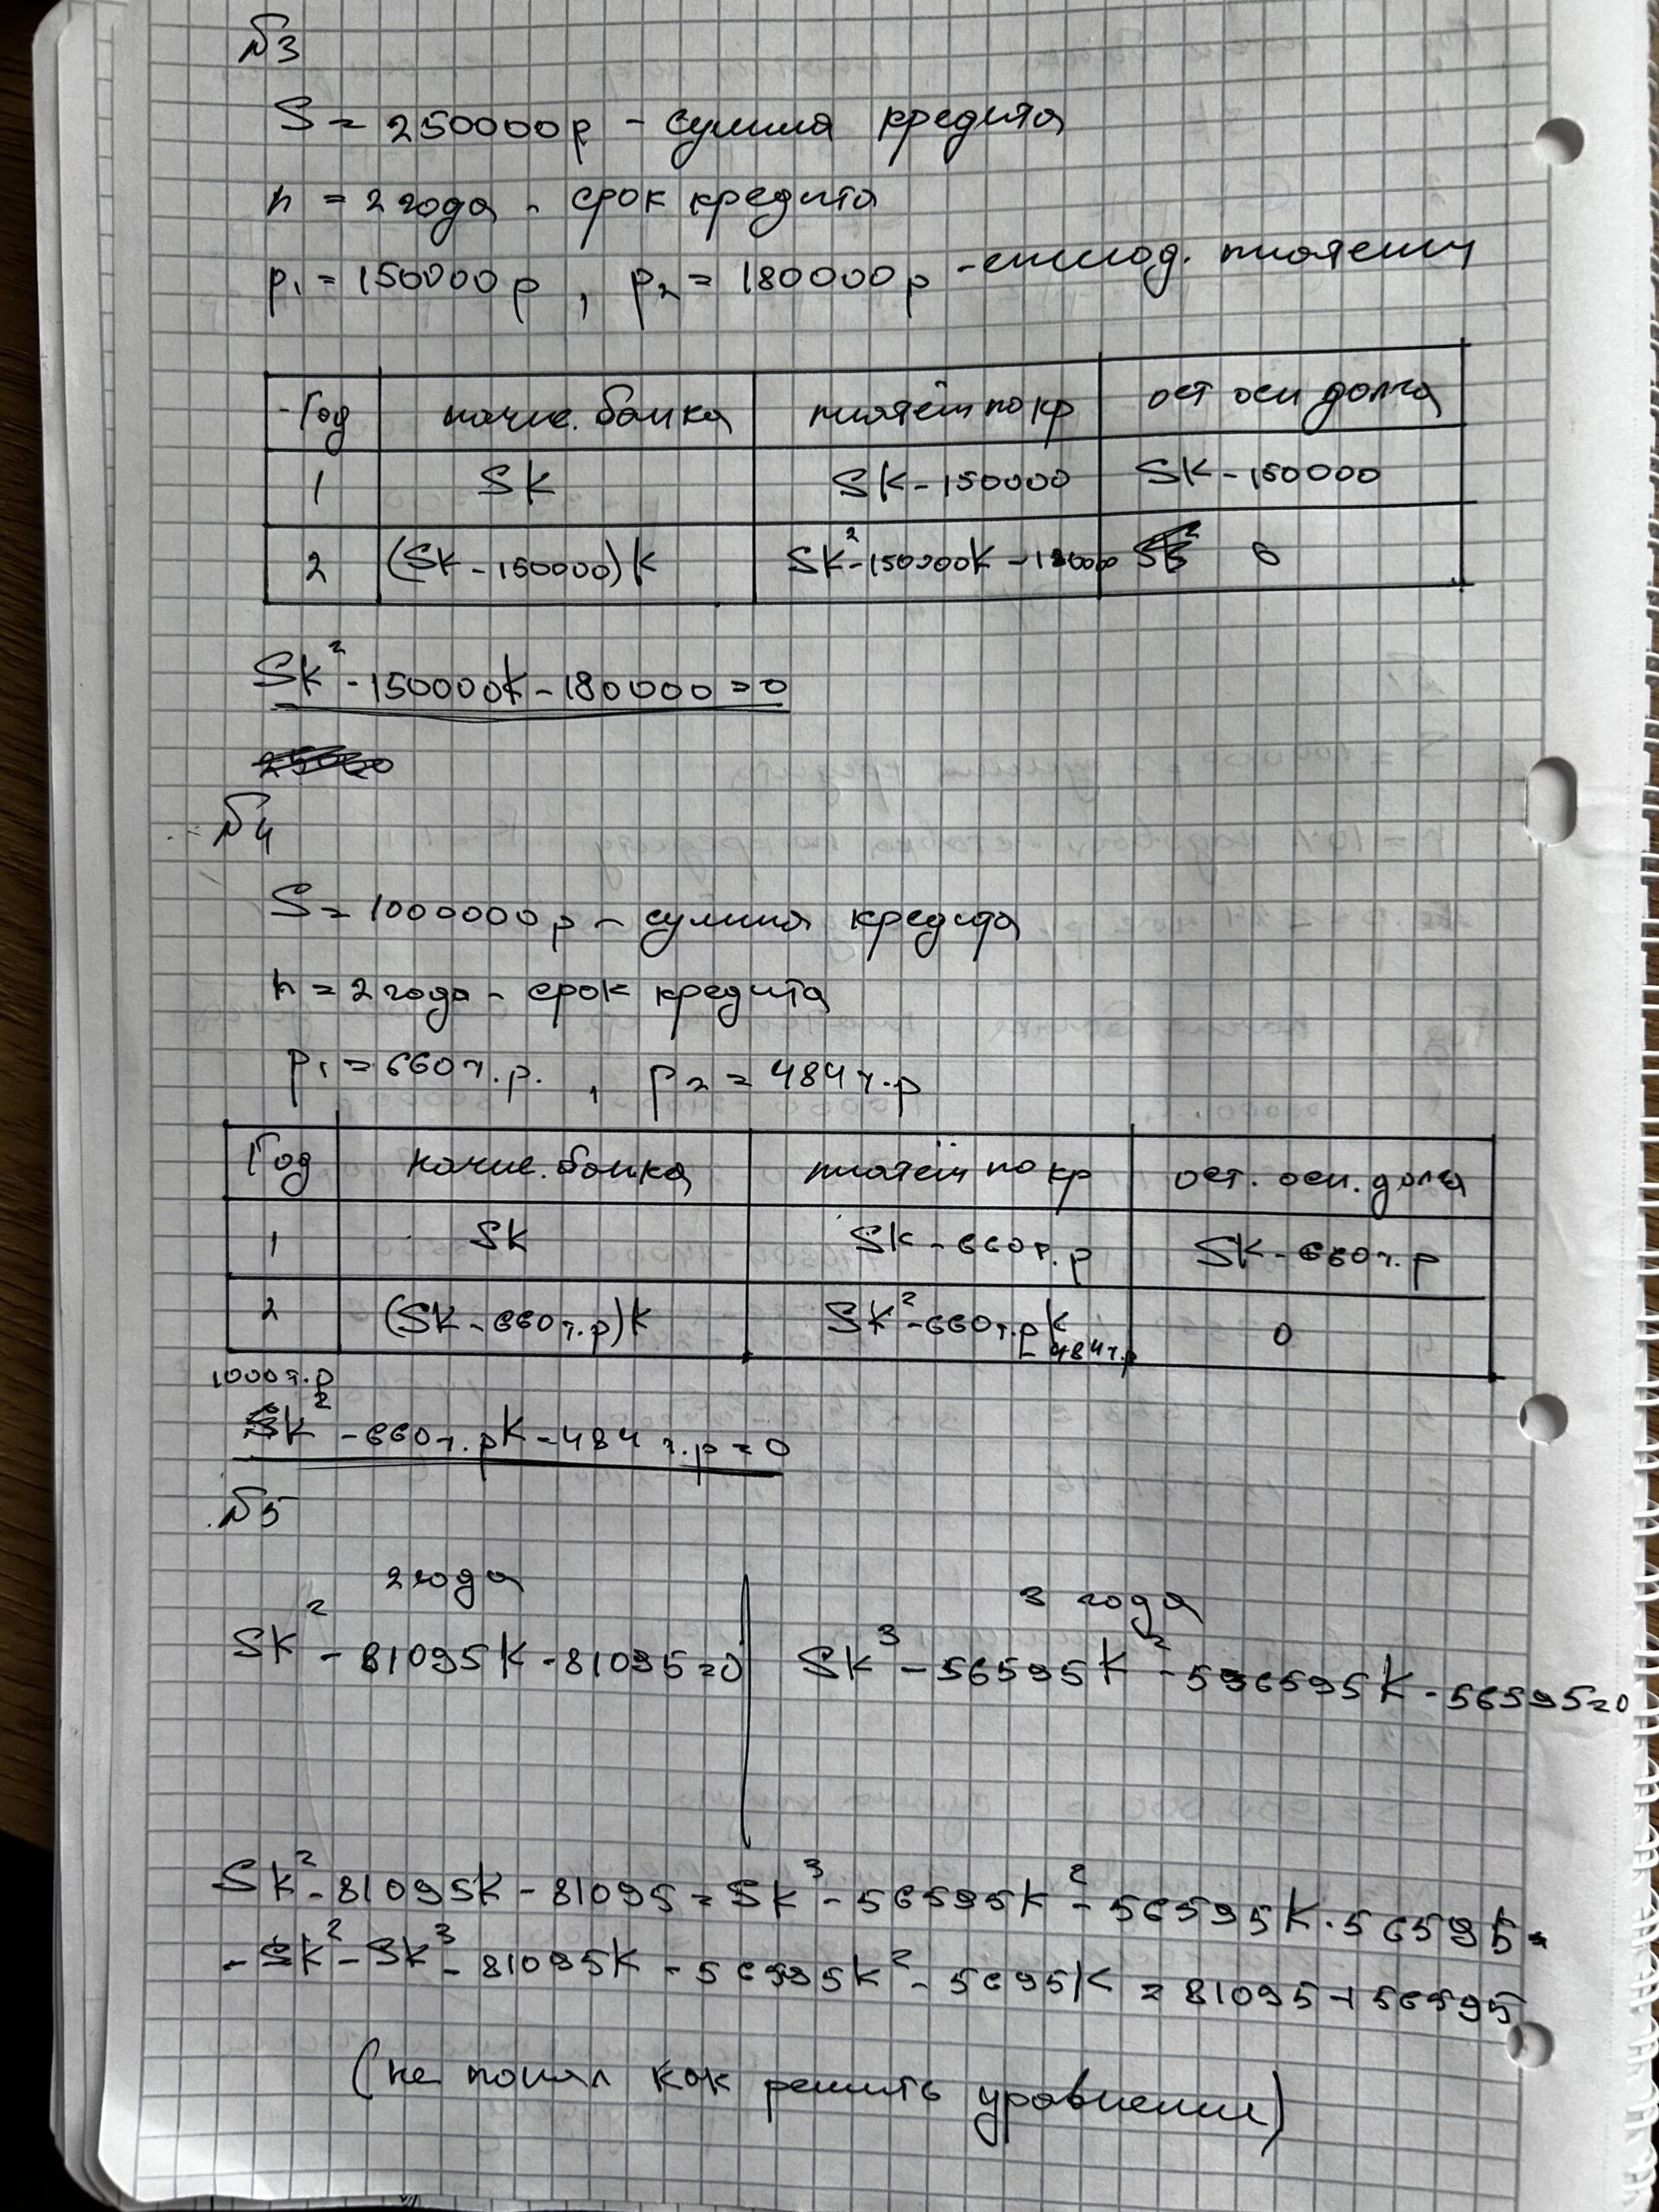 №3
S = 250000р - сумма кредита
n = 2 года - срок кредита
p₁ = 150000р , p₂ = 180000р - ежегод. платежи
Год начис. банка платёж по кр ост осн долга
1 SK SK - 150000 SK - 150000
2 (SK - 150000)K SK² - 150000K - 18000 0
SK² - 150000K - 180000 = 0
№4
S = 1000000р - сумма кредита
n = 2 года - срок кредита
p₁ = 660т.р. , p₂ = 484т.р
Год начис. банка платёж по кр ост. осн. долга
1 SK SK - 660т.р SK - 660т.р
2 (SK - 660т.р)K SK² - 660т.рK - 484т.р 0
1000т.р
SK² - 660т.рK - 484т.р = 0
№5
2 года 3 года
SK² - 81095K - 81095 = 0 SK³ - 56595K² - 556595K - 56595 = 0
SK² - 81095K - 81095 = SK³ - 56595K² - 56595K - 56595 =
= SK² - SK³ - 81095K - 56595K² - 5695K = 81095 + 56595
(не понял как решить уравнение)